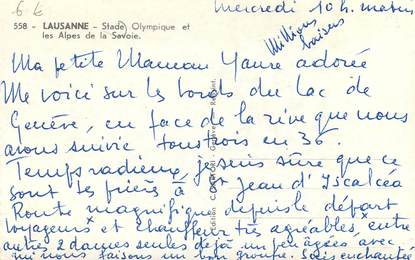 6 €
mercredi 10 h. matin
558 - LAUSANNE - Stade Olympique et
les Alpes de la Savoie.
Millions
baisers
Ma petite Maman adorée
Me voici sur les bords du lac de
Genève, en face de la rive que nous
avons suivie tous trois en 36.
Temps radieux, je suis sûre que ce
sont les prières à St Jean d'
Route magnifique depuis le départ
voyageurs et chauffeur très agréables, entre
autres 2 dames seules déjà un peu âgées avec
qui nous faisons un bon groupe. Suis enchantée
Edition